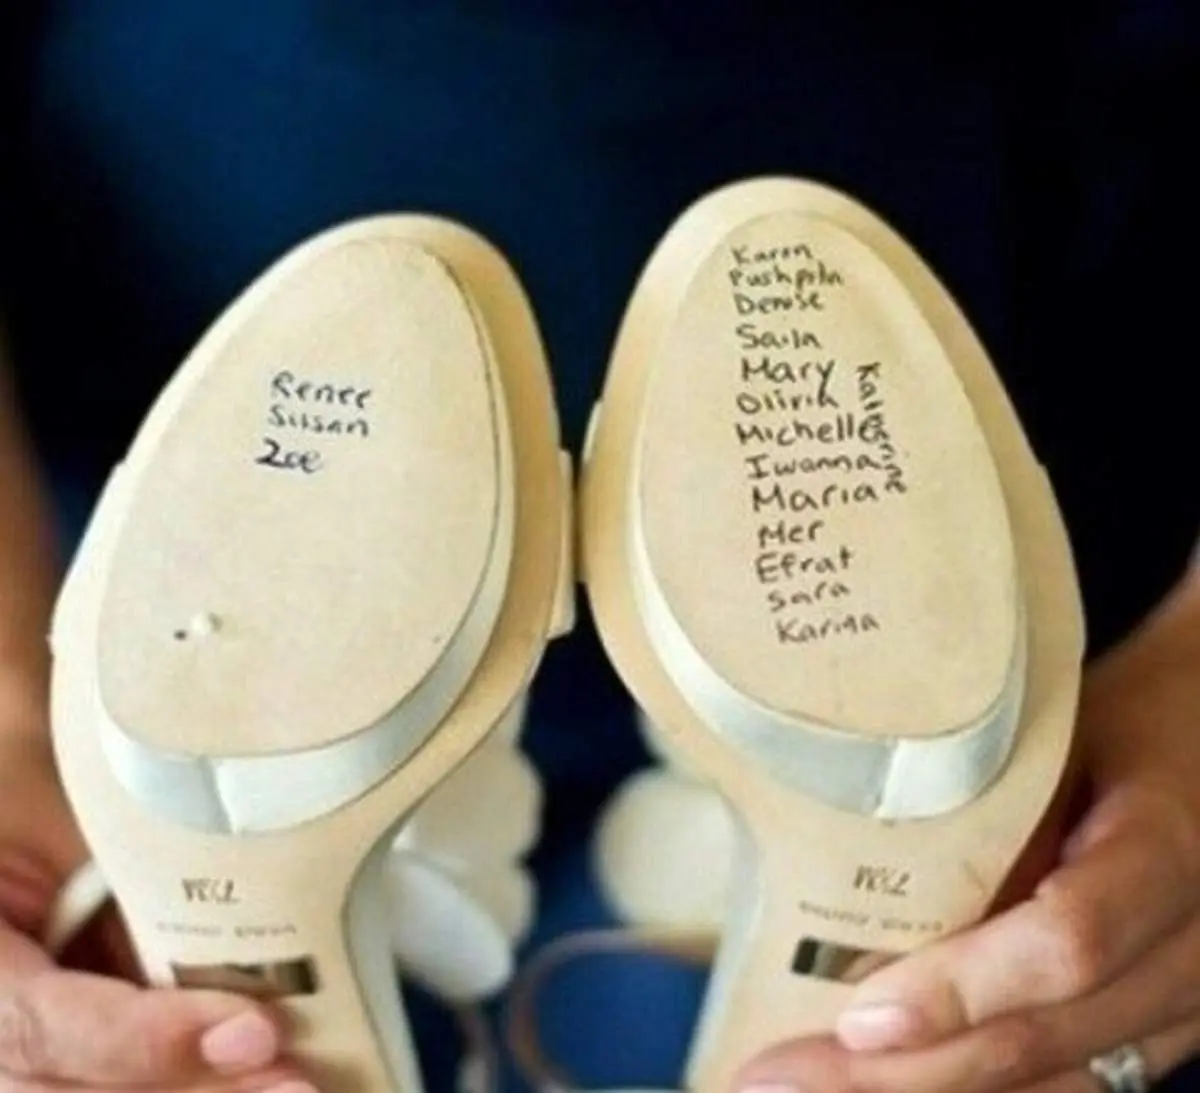 Renee
Susan
Zoe
Karen
Denise
Saila
Mary
Olivia
Michelle
Iwanna
Maria
Mer
Efrat
Sara
Karina
Katerina
7½M
7½M